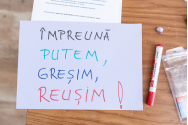 ÎMPREUNĂ
PUTEM,
GREȘIM,
REUȘIM!